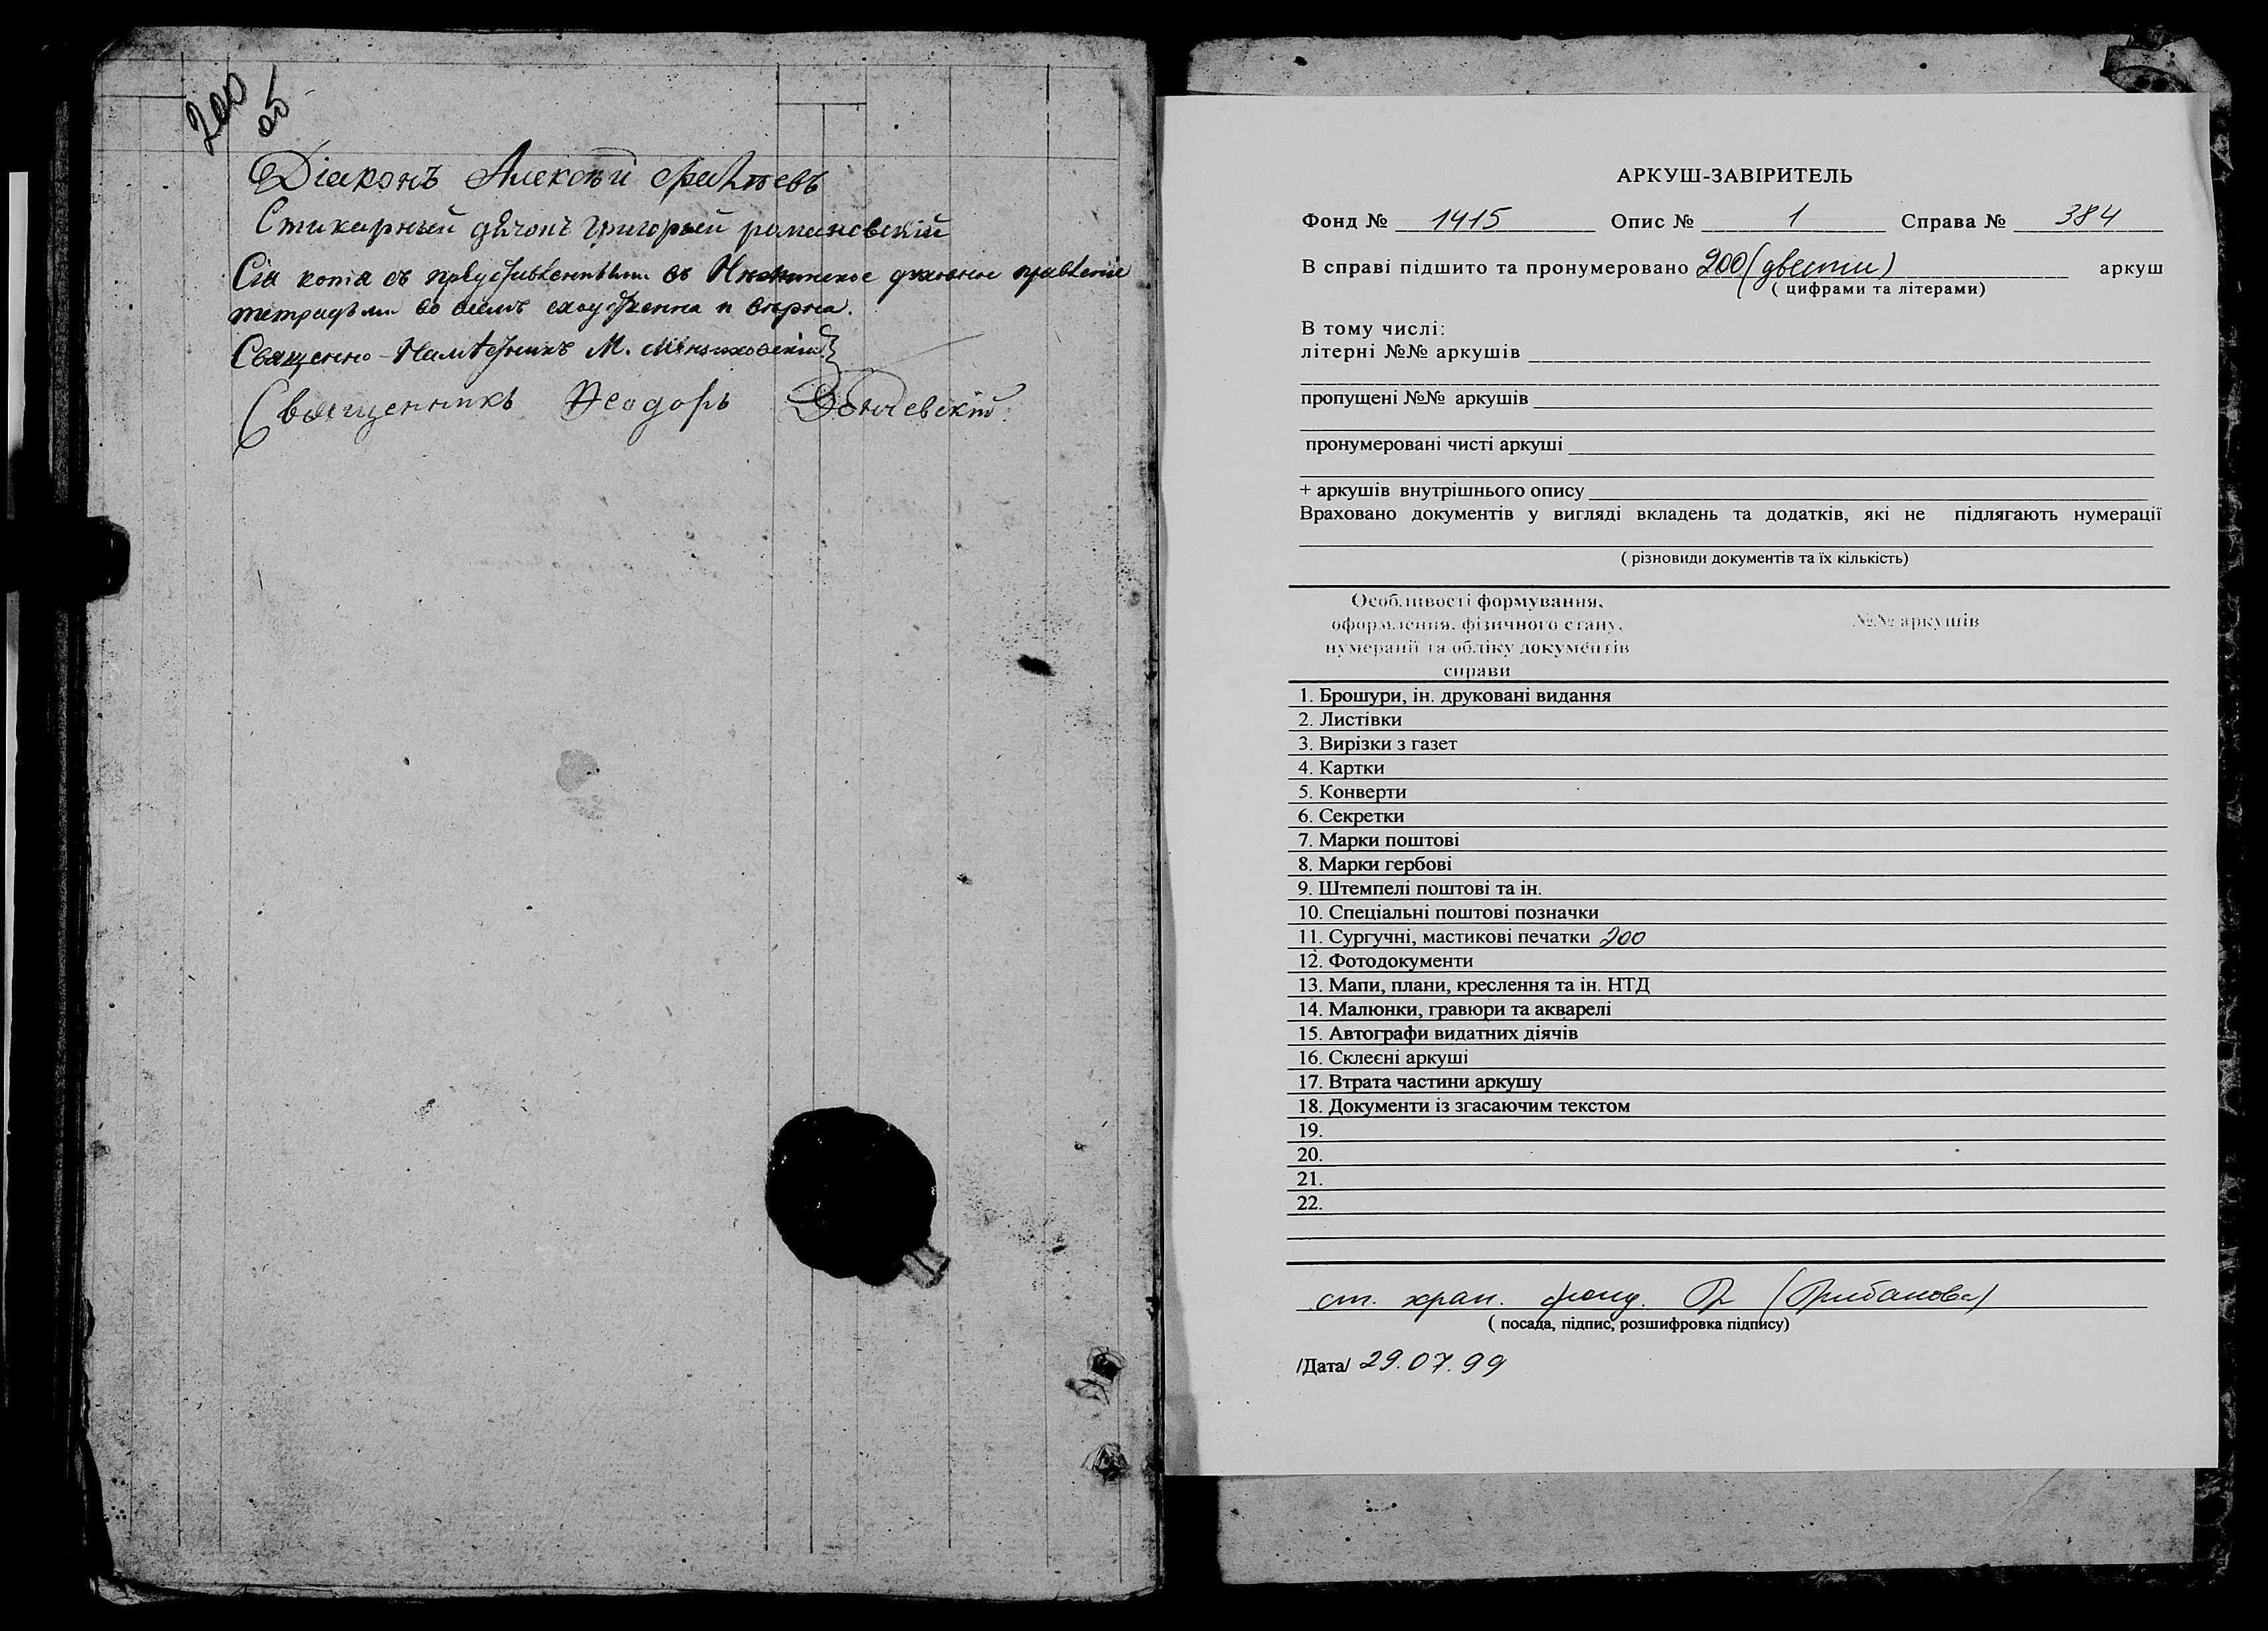 200
об
Діаконъ Алексѣй
Стихарный дячокъ Григорый романовскій
Сія копія съ представленными въ Нѣжинское духовное правленіе
тетрадьми во всемъ сходственна и вѣрна.
Священно-Намѣстникъ М.
Священникъ Ѳеодоръ
АРКУШ-ЗАВІРИТЕЛЬ
Фонд № 1415 Опис № 1 Справа № 384
В справі підшито та пронумеровано 200 (двести) аркуш
( цифрами та літерами)
В тому числі:
літерні №№ аркушів
пропущені №№ аркушів
пронумеровані чисті аркуші
+ аркушів внутрішнього опису
Враховано документів у вигляді вкладень та додатків, які не підлягають нумерації
( різновиди документів та їх кількість)
Особливості формування,
оформлення, фізичного стану, №№ аркушів
нумерації та обліку документів
справи
1. Брошури, ін. друковані видання
2. Листівки
3. Вирізки з газет
4. Картки
5. Конверти
6. Секретки
7. Марки поштові
8. Марки гербові
9. Штемпелі поштові та ін.
10. Спеціальні поштові позначки
11. Сургучні, мастикові печатки 200
12. Фотодокументи
13. Мапи, плани, креслення та ін. НТД
14. Малюнки, гравюри та акварелі
15. Автографи видатних діячів
16. Склеєні аркуші
17. Втрата частини аркушу
18. Документи із згасаючим текстом
19.
20.
21.
22.
ст. хран. фонд. (Грибанова)
( посада, підпис, розшифровка підпису)
/Дата/ 29.07.99